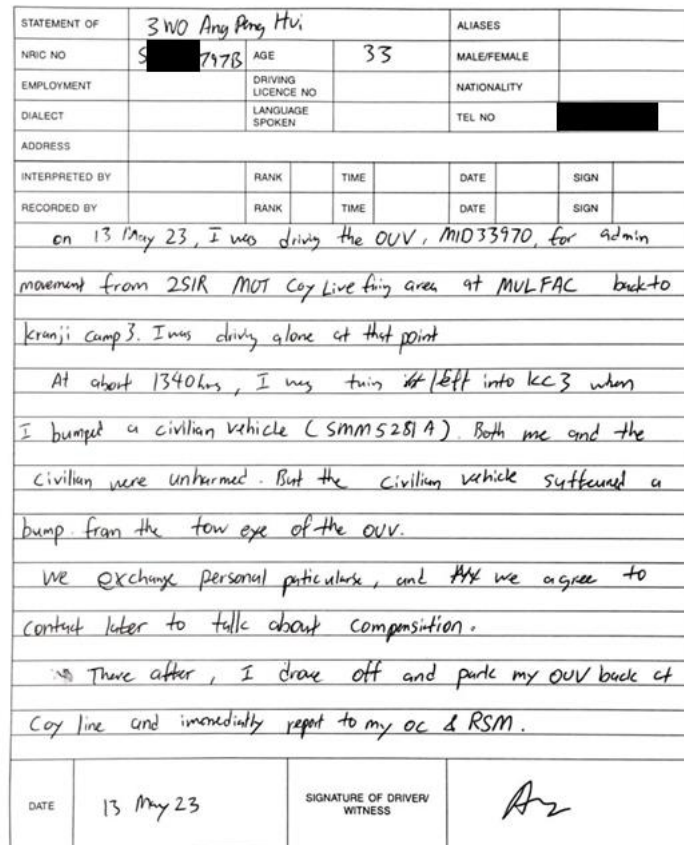 STATEMENT OF 3WO Ang Peng Hui ALIASES
NRIC NO S 797B AGE 33 MALE/FEMALE
EMPLOYMENT DRIVING LICENCE NO NATIONALITY
DIALECT LANGUAGE SPOKEN TEL NO
ADDRESS
INTERPRETED BY RANK TIME DATE SIGN
RECORDED BY RANK TIME DATE SIGN
on 13 May 23, I was drivig the OUV, MID33970, for admin
movement from 2SIR MOT Coy Live firing area at MULFAC back to
kranji camp 3. I was drivig alone at that point
At about 1340hrs, I was turin left into kc3 when
I bumped a civilian vehicle (SMM5281A). Both me and the
civilian were unharmed. But the civilian vehicle suffeured a
bump. from the tow eye of the OUV.
we exchange personal paticulars, and we agree to
contact later to talk about compensiation.
There after, I drove off and park my OUV back at
Coy line and immediatly report to my oc & RSM.
DATE 13 May 23 SIGNATURE OF DRIVER/ WITNESS